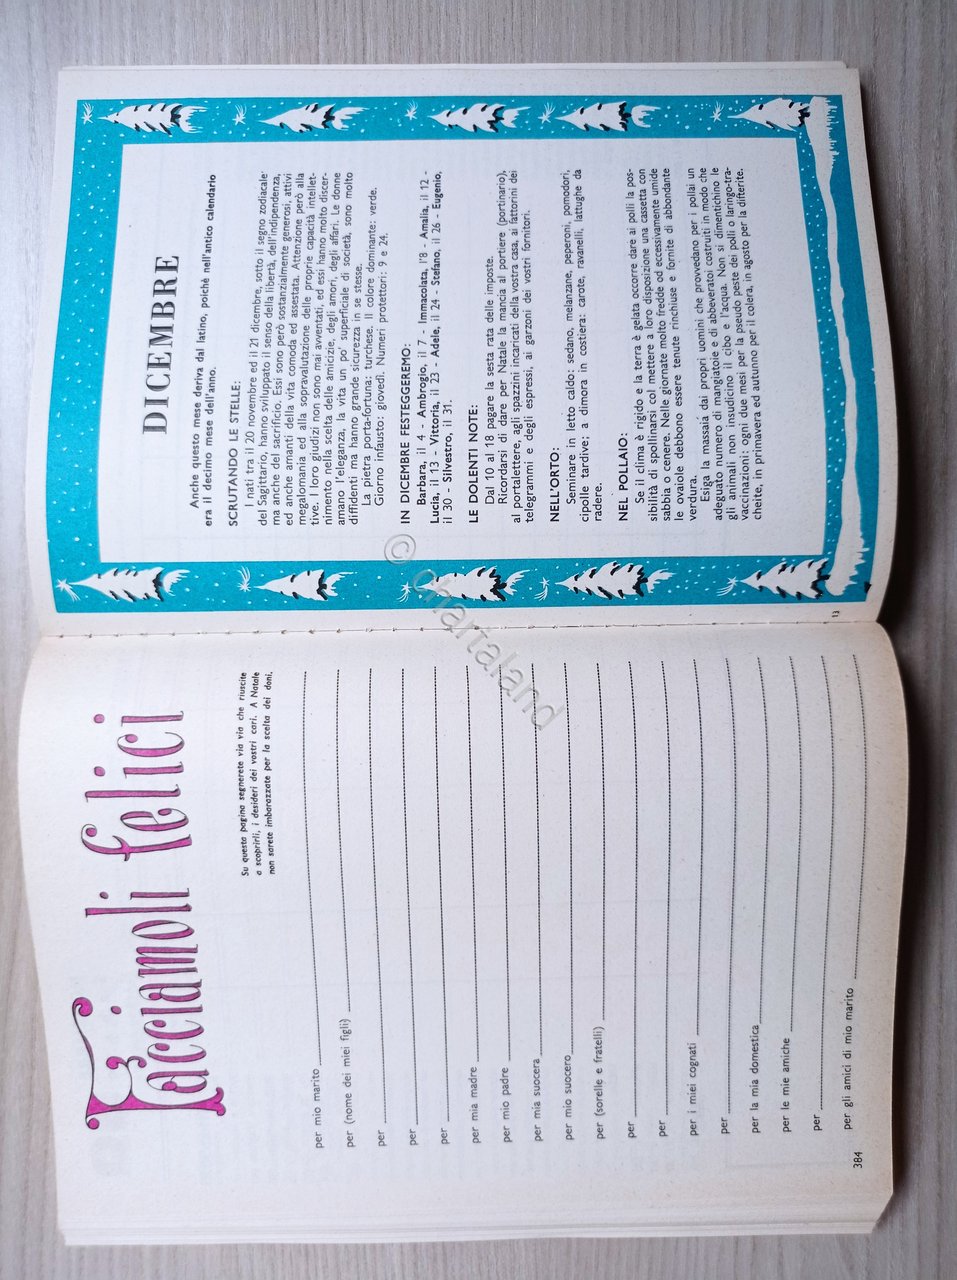 Facciamoli felici
Su questa pagina segnerete via via che riuscite
a scoprirli, i desideri dei vostri cari. A Natale
non sarete imbarazzate per la scelta dei doni.
per mio marito
per (nome dei miei figli)
per
per
per
per mia madre
per mio padre
per mia suocera
per mio suocero
per (sorelle e fratelli)
per
per
per i miei cognati
per
per la mia domestica
per le mie amiche
per
per gli amici di mio marito
384
DICEMBRE
Anche questo mese deriva dal latino, poichè nell'antico calendario
era il decimo mese dell'anno.
SCRUTANDO LE STELLE:
I nati tra il 20 novembre ed il 21 dicembre, sotto il segno zodiacale
del Sagittario, hanno sviluppato il senso della libertà, dell'indipendenza,
ma anche del sacrificio. Essi sono però sostanzialmente generosi, attivi
ed anche amanti della vita comoda ed assestata. Attenzione però alla
megalomania ed alla sopravalutazione delle proprie capacità intellet-
tive. I loro giudizi non sono mai avventati, ed essi hanno molto discer-
nimento nella scelta delle amicizie, degli amori, degli affari. Le donne
amano l'eleganza, la vita un po' superficiale di società, sono molto
diffidenti ma hanno grande sicurezza in se stesse.
La pietra porta-fortuna: turchese. Il colore dominante: verde.
Giorno infausto: giovedì. Numeri protettori: 9 e 24.
IN DICEMBRE FESTEGGEREMO:
Barbara, il 4 - Ambrogio, il 7 - Immacolata, l'8 - Amalia, il 12 -
Lucia, il 13 - Vittoria, il 23 - Adele, il 24 - Stefano, il 26 - Eugenio,
il 30 - Silvestro, il 31.
LE DOLENTI NOTE:
Dal 10 al 18 pagare la sesta rata delle imposte.
Ricordarsi di dare per Natale la mancia al portiere (portinario),
al portalettere, agli spazzini incaricati della vostra casa, ai fattorini dei
telegrammi e degli espressi, ai garzoni dei vostri fornitori.
NELL'ORTO:
Seminare in letto caldo: sedano, melanzane, peperoni, pomodori,
cipolle tardive; a dimora in costiera: carote, ravanelli, lattughe da
radere.
NEL POLLAIO:
Se il clima è rigido e la terra è gelata occorre dare ai polli la pos-
sibilità di spollinarsi col mettere a loro disposizione una cassetta con
sabbia o cenere. Nelle giornate molto fredde od eccessivamente umide
le ovaiole debbono essere tenute rinchiuse e fornite di abbondante
verdura.
Esiga la massaia dai propri uomini che provvedano per i pollai un
adeguato numero di mangiatoie e di abbeveratoi costruiti in modo che
gli animali non insudicino il cibo e l'acqua. Non si dimentichino le
vaccinazioni: ogni due mesi per la pseudo peste dei polli o laringo-tra-
cheite, in primavera ed autunno per il colera, in agosto per la difterite.
13
© chartaland